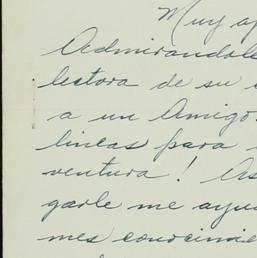 Muy ap
Admirandole
lectora de su
a un Amigo.
lineas para
ventura! As
garle me ayu
mes conocimie